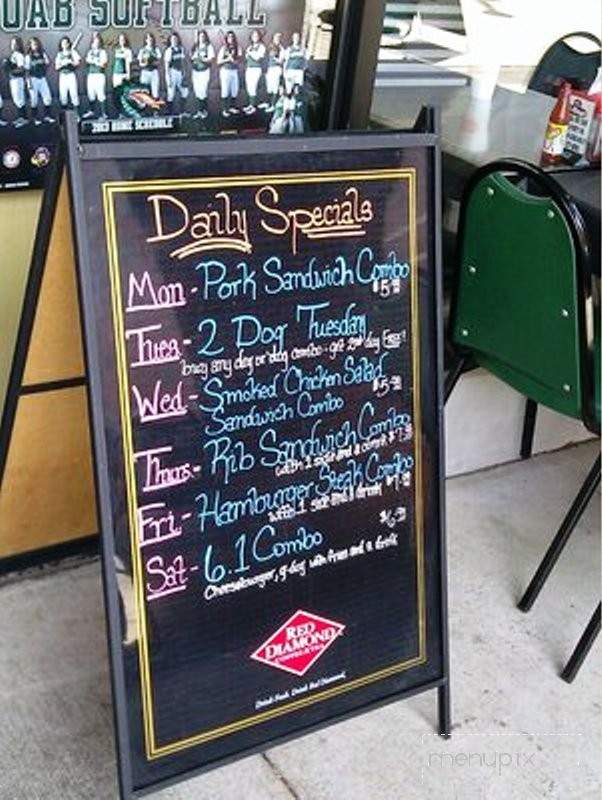 UAB SOFTBALL
2013 HOME SCHEDULE
Daily Specials
Mon - Pork Sandwich Combo
Tues - 2 Dog Tuesday
buy any dog or dog combo - get 2nd dog Free!
Wed - Smoked Chicken Salad
Sandwich Combo
Thurs - Rib Sandwich Combo
with 1 side and a drink
Fri - Hamburger Steak Combo
with 1 side and a drink
Sat - 6.1 Combo
Cheeseburger, g-dog with fries and a drink
RED
DIAMOND
COFFEE & TEA
Drink Fresh. Drink Red Diamond.
menupix